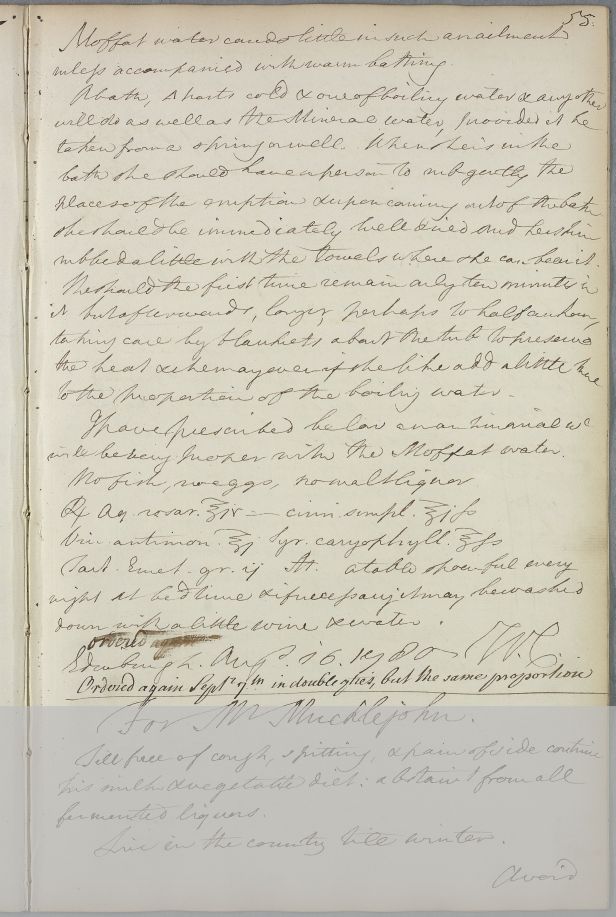 55.
Moffat water can do little in such an ailment
unless accompanied with warm bathing.
A bath, 2 parts cold & one of boiling water & any other
will do as well as the Mineral water, provided it be
taken from a spring or well. When she is in the
bath she should have a person to rub gently the
places of the eruption & upon coming out of the bath
she should be immediately well dried and her skin
rubbed a little with the towels where she can bear it
She should the first time remain only ten minutes in
it but afterwards, longer, perhaps to half an hour,
taking care by blankets about the tub to preserve
the heat & she may even if she like add a little more
to the proportion of the boiling water.
I have prescribed below an antimonial wc
will be very proper with the Moffat water.
No fish, no eggs, no malt liquor
℞ Aq. rosar. ℥iv — cinn. simpl. ℥jſs
Vin. antimon. ℥j Syr. caryophyll. ℥ſs
Tart. Emet. gr. ij M. a table spoonful every
night at bed time & if necessary it may be washed
down with a little wine & water.
ordered again
Edinburgh. Augt. 16. 1780 W.C.
Ordered again Septr. 9th in double qties, but the same proportion
For Mr Mucklejohn.
Till free of cough, spitting, & pain of side continue
his milk & vegetable diet: abstain from all
fermented liquors.
Live in the country till winter.
Avoid